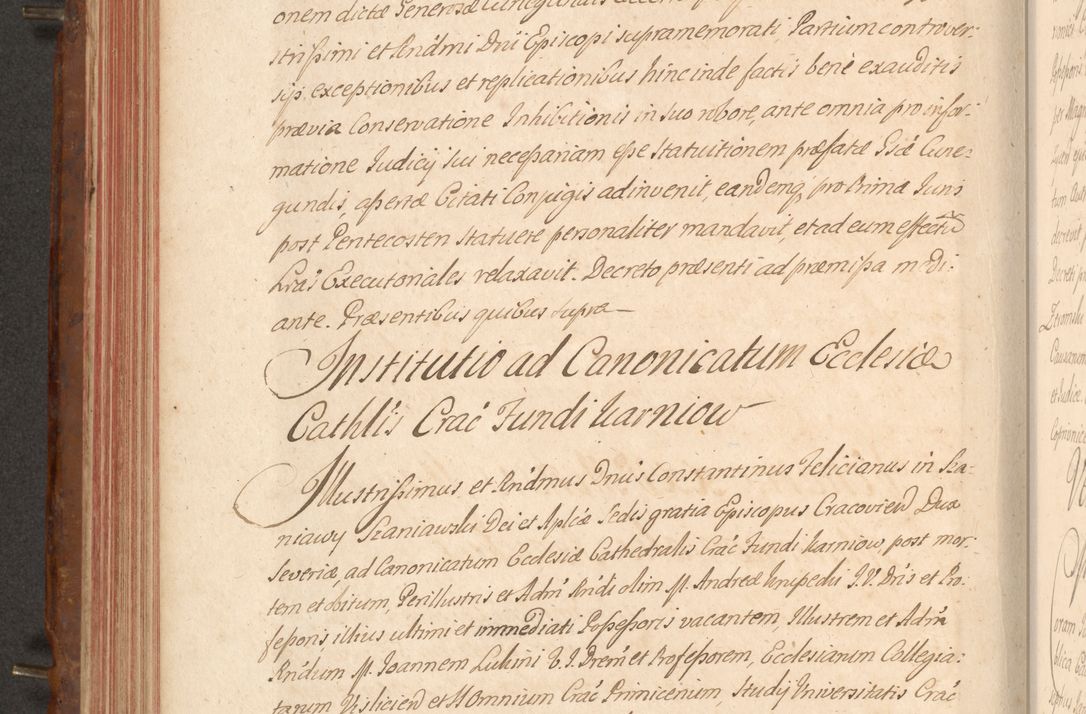 onem dictæ Generosæ
strissimi et Rndmi Dni Episcopi supramemorati Partium controver-
sijs exceptionibus et replicationibus hinc inde factis bene exauditis
prævia Conservatione Inhibitionis in suo robore, ante omnia pro infor-
matione Judicij sui necessariam esse Statuitionem præfatæ Gsæ Cune-
gundis, assertæ Citati Conjugis adinvenit, eandemq; pro Prima Juris
post Pentecosten Statuere personaliter mandavit, et ad eum effectū
Lras Executoriales relaxavit. Decreto præsenti ad præmissa medi-
ante. Præsentibus quibus supra
Institutio ad Canonicatum Ecclesiæ
Cathlis Crac Fundi Karniow
Illustrissimus et Rndmus Dnus Constantinus Felicianus in Sza-
niawy Szaniawski Dei et Aplicæ Sedis gratia Episcopus Cracovien Dux
Severiæ, ad Canonicatum Ecclesiæ Cathedralis Crac Fundi Karniow, post mor-
tem et obitum, Perillustris et Adm Rndi olim M. Andreæ Krupedii J. V. Dris et Pro-
fessoris, illius ultimi et immediati Possessoris vacantem, Illustrem et Adm
Rndum M. Joannem Lukini V. J. Drem et Professorem, Ecclesiarum Collegia-
tarum Vislicien et SS Omnium Crac Primicerium, Studij Universitatis Crac